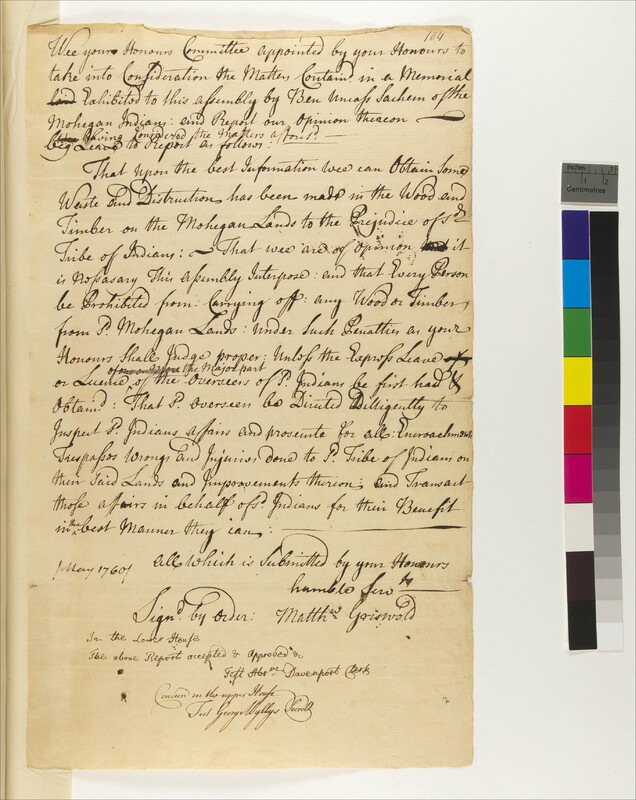 104
Wee your Honours Committee appointed by your Honours to
take into Consideration the Matters Contain.d in a Memorial
Exhibited to this assembly by Ben Uncass Sachem of the
Mohegan Indians: and Report our Opinion thereon
Having Considered the Matters afores.d
beg Leave to Report as follows:
That upon the best Information wee can Obtain Some
Waste and Distruction has been made in the Wood and
Timber on the Mohegan Lands to the Prejudice of s.d
Tribe of Indians: That wee are of Opinion it
is Nessasary This Assembly Interpose: and that Every Person
be Prohibited from: Carrying off: any Wood or Timber
from s.d Mohegan Lands: under Such Penalties as your
Honours Shall Judge proper: Unless the Express Leave
the Major part
or Lucence of the Overseers of s.d Indians be first had &
Obtain.d: That s.d overseers be Directed Dilligently to
Inspect s.d Indians affairs and prosecute for all Encroachment
Trespasses Wrongs And Injuries done to s.d Tribe of Indians on
their Said Lands and Improvements thereon; and Transact
those affairs in behalf of s.d Indians for their Benefit
in the best Manner they can:
[May 1760] all which is Submitted by your Honours
humble Serv.ts
Sign.d by Order: Matth.w Griswold
In the Lower House
The above Report accepted & Approved &c
Test Abr.m Davenport Clerk
Concurr'd in the upper House
Test George Wyllys Secret.y
inches
1
2
Centimetres